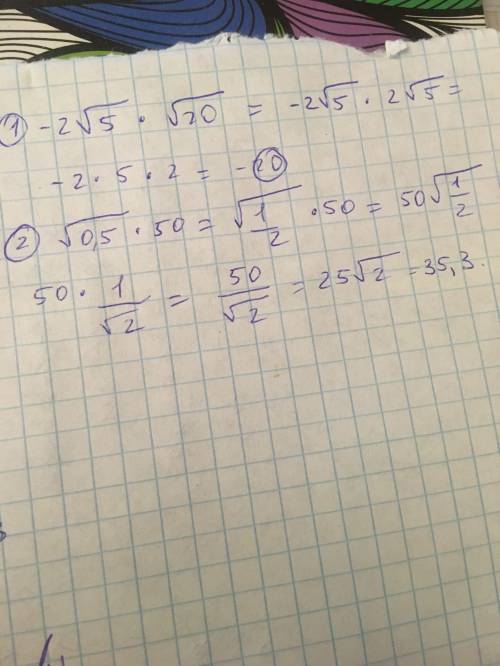 ① -2√5 · √20 = -2√5 · 2√5 =
-2 · 5 · 2 = -20
② √0,5 · 50 = √(1/2) · 50 = 50√(1/2)
50 · 1/√2 = 50/√2 = 25√2 = 35,3.